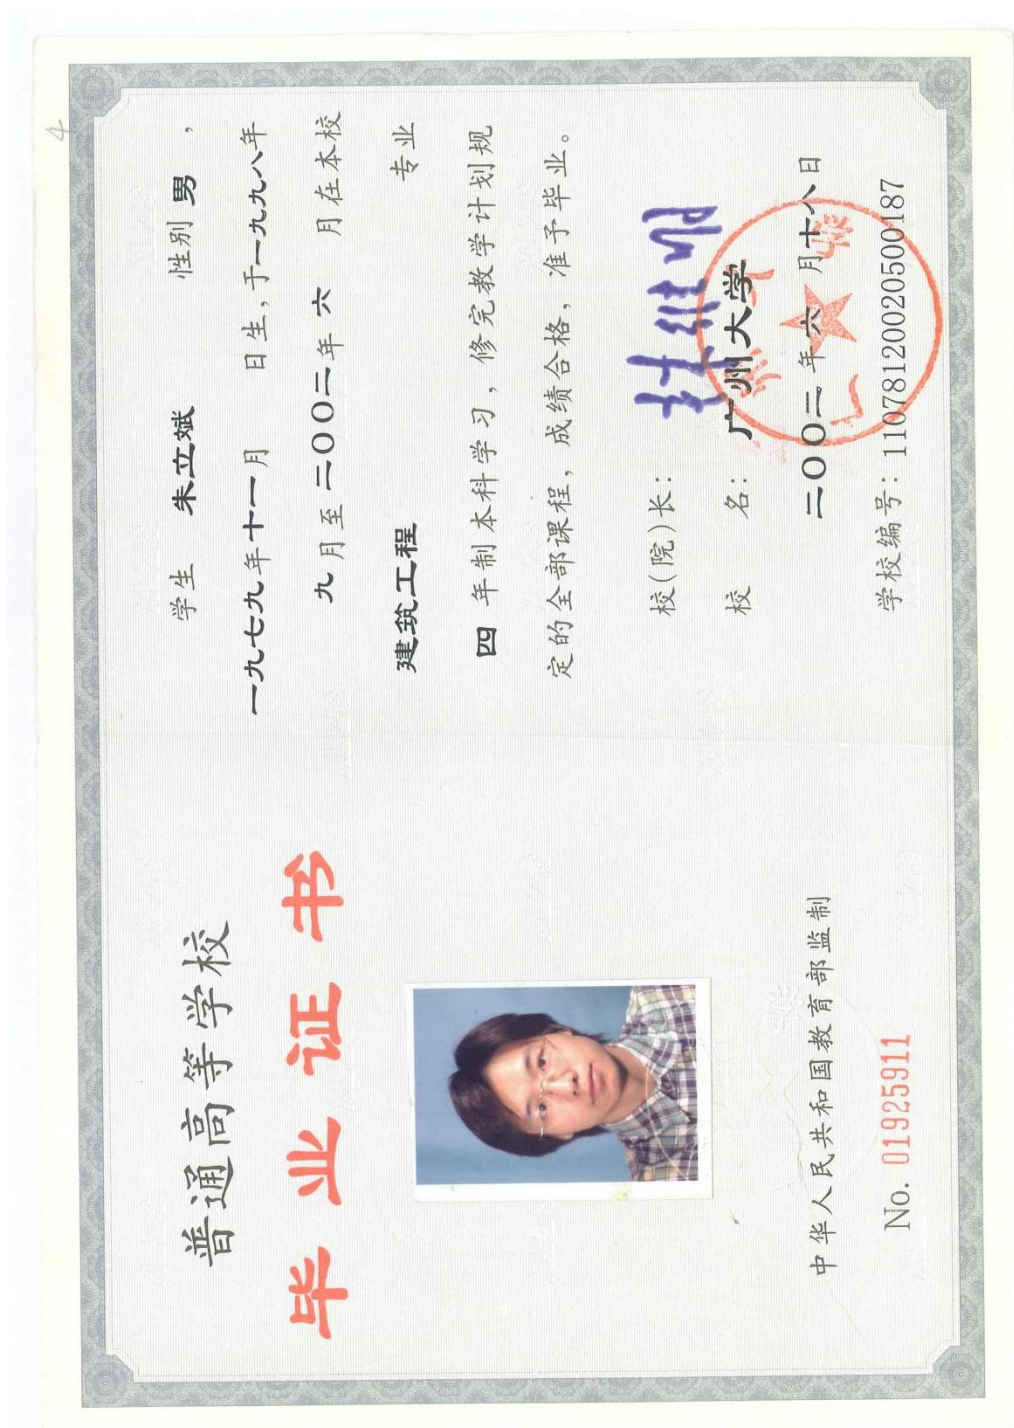 普通高等学校
毕业证书
中华人民共和国教育部监制
No. 01925911
学生 朱立斌 性别 男 ，
一九七九年十一月 日生，于一九九八年
九月至二〇〇二年六 月在本校
建筑工程 专业
四 年制本科学习，修完教学计划规
定的全部课程，成绩合格，准予毕业。
校(院)长：
校 名： 广州大学
二〇〇二年六月十八日
学校编号：11078120020500187
4